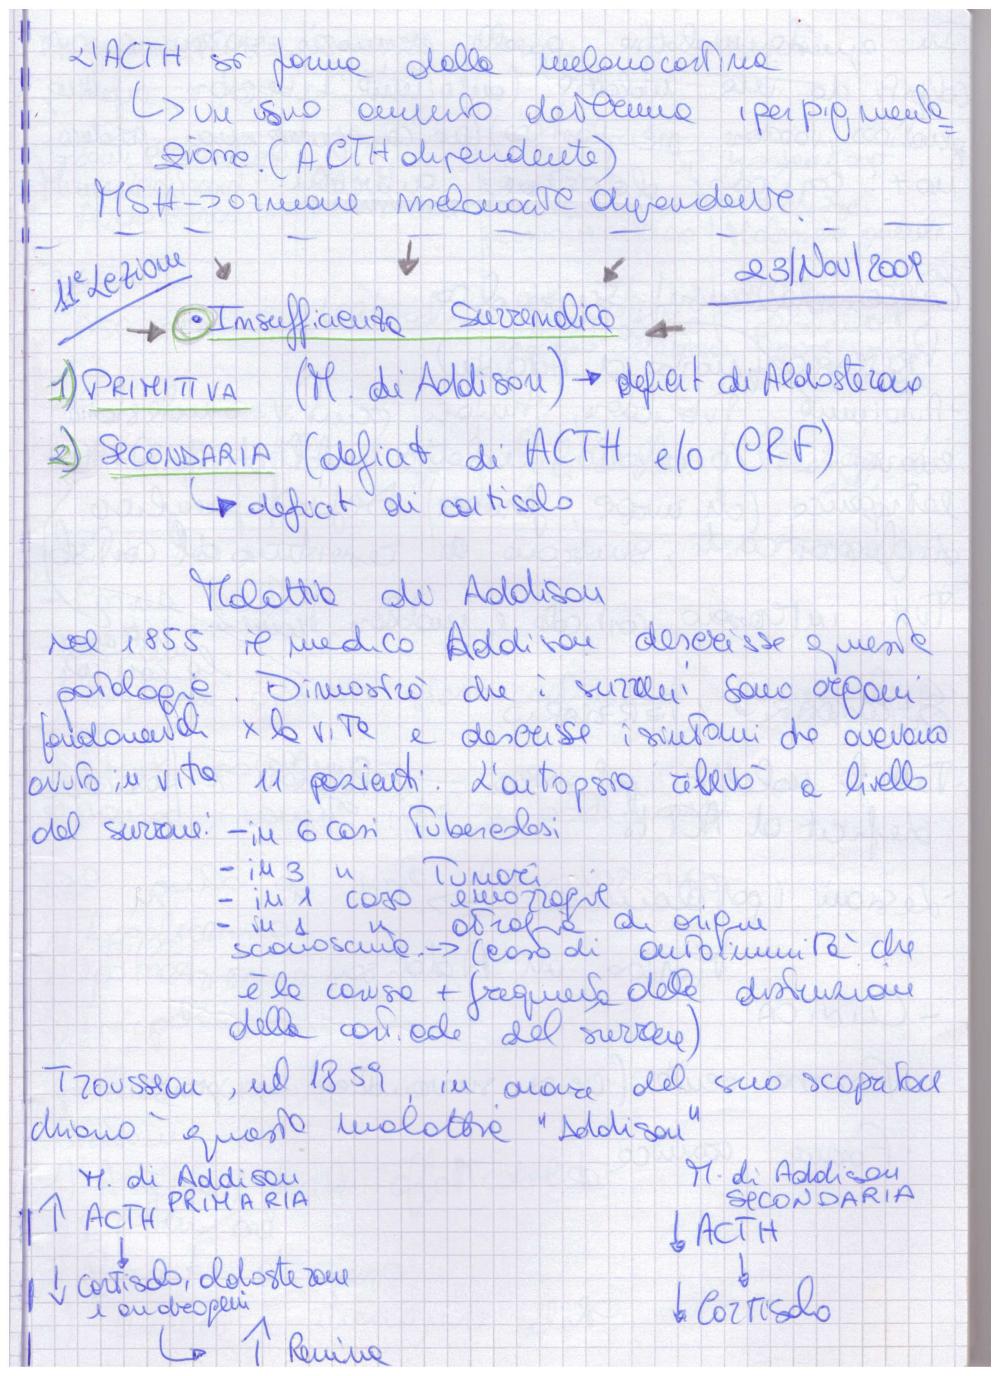 L'ACTH si forma dalla melanocortina
↳ un suo aumento determina iperpigmenta=
zione. (ACTH dipendente)
MSH → ormone melanocita dipendente.
11ª Lezione
23/Nov/2009
• Insufficienza Surrenalica
1) PRIMITIVA (M. di Addison) → deficit di Aldosterone
2) SECONDARIA (deficit di ACTH e/o CRF)
↳ deficit di cortisolo
Malattia di Addison
Nel 1855 il medico Addison descrisse questa
patologia. Dimostrò che i surreni sono organi
fondamentali x la vita e descrisse i sintomi che avevano
avuto in vita 11 pazienti. L'autopsia rilevò a livello
del surrene: - in 6 casi Tubercolosi
- in 3 " Tumori
- in 1 caso emorragie
- in 1 " atrofia di origine
sconosciuta. → (caso di autoimmunità che
è la causa + frequente della distruzione
della corticale del surrene)
Trousseau, nel 1859, in onore del suo scopritore
chiamò questa malattia "Addison"
M. di Addison
PRIMARIA
↑ ACTH
↓
↓ Cortisolo, aldosterone
e androgeni
↳ ↑ Renina
M. di Addison
SECONDARIA
↓ ACTH
↓
↓ Cortisolo